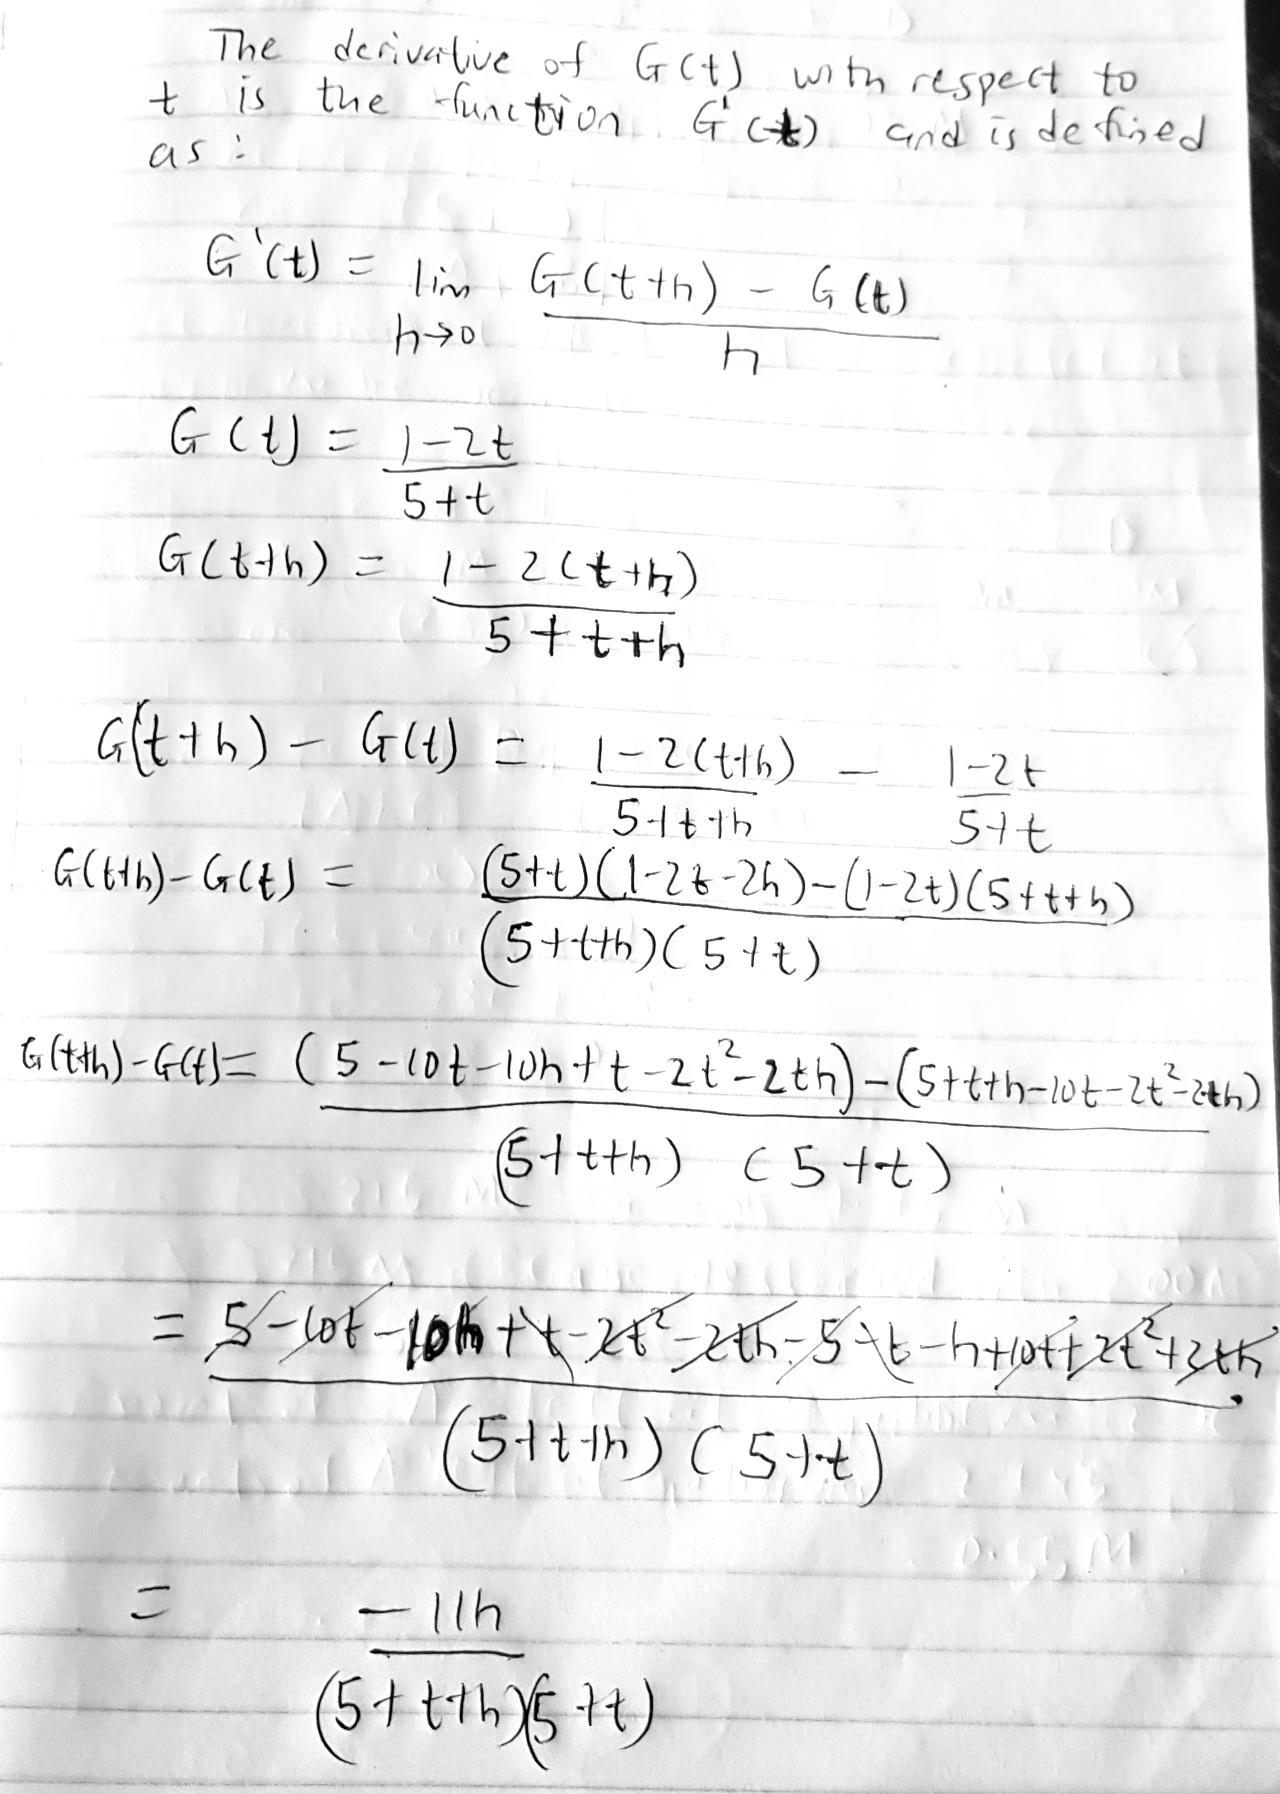 The derivative of G(t) with respect to
t is the function G'(t) and is defined
as :
G'(t) = lim h→0 (G(t+h) - G(t))/h
G(t) = (1-2t)/(5+t)
G(t+h) = (1-2(t+h))/(5+t+h)
G(t+h) - G(t) = (1-2(t+h))/(5+t+h) - (1-2t)/(5+t)
G(t+h)-G(t) = ((5+t)(1-2t-2h)-(1-2t)(5+t+h))/((5+t+h)(5+t))
G(t+h)-G(t)= ((5-10t-10h+t-2t²-2th)-(5+t+h-10t-2t²-2th))/((5+t+h)(5+t))
= (5-10t-10h+t-2t²-2th-5-t-h+10t+2t²+2th)/((5+t+h)(5+t))
= (-11h)/((5+t+h)(5+t))